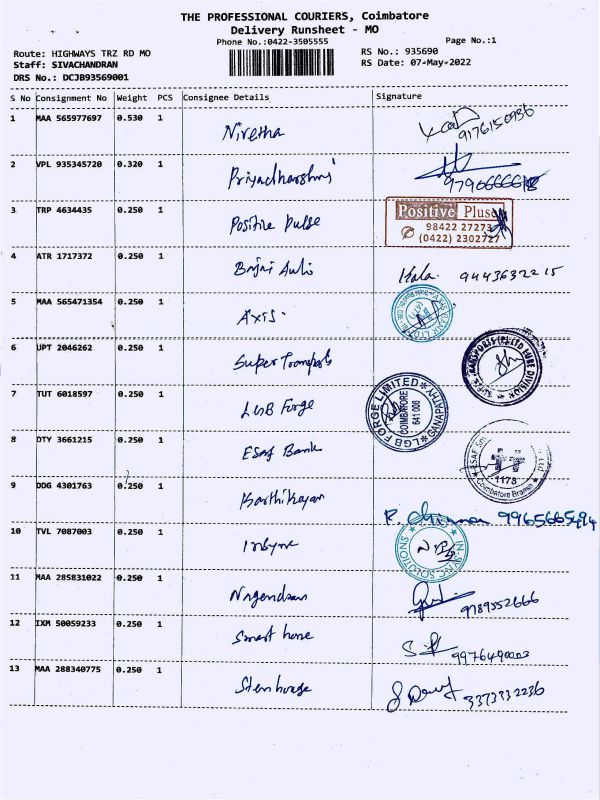 THE PROFESSIONAL COURIERS, Coimbatore
Delivery Runsheet - MO
Phone No.:0422-3505555
Page No.:1
Route: HIGHWAYS TRZ RD MO
RS No.: 935690
Staff: SIVACHANDRAN
RS Date: 07-May-2022
DRS No.: DCJB93569001
S No Consignment No Weight PCS Consignee Details Signature
1 MAA 565977697 0.530 1 Nivetha 9176150936
2 VPL 935345720 0.320 1 Priyadharshni
3 TRP 4634435 0.250 1 Positive Pulse
Positive Pluse
98422 27273
(0422) 2302727
4 ATR 1717372 0.250 1 Bajaj Auto Kala. 9443632215
5 MAA 565471354 0.250 1 AXIS.
6 UPT 2046262 0.250 1 Super Transports
SUPER TRANSPORTS (P) LTD SUB DIVISION
7 TUT 6018597 0.250 1 LGB Forge
LGB FORGE LIMITED
COIMBATORE
641 006
GANAPATHY
8 DTY 3661215 0.250 1 ESAF Bank
ESAF
1178
Coimbatore Branch
9 DDG 4301763 0.250 1 Karthikeyan
R. 9965665494
10 TVL 7087003 0.250 1 Insync
INSYNC SOLUTIONS
11 MAA 285831022 0.250 1 Nagendran 9789552666
12 IXM 50059233 0.250 1 Smart home 9976490003
13 MAA 288340775 0.250 1 3373332236